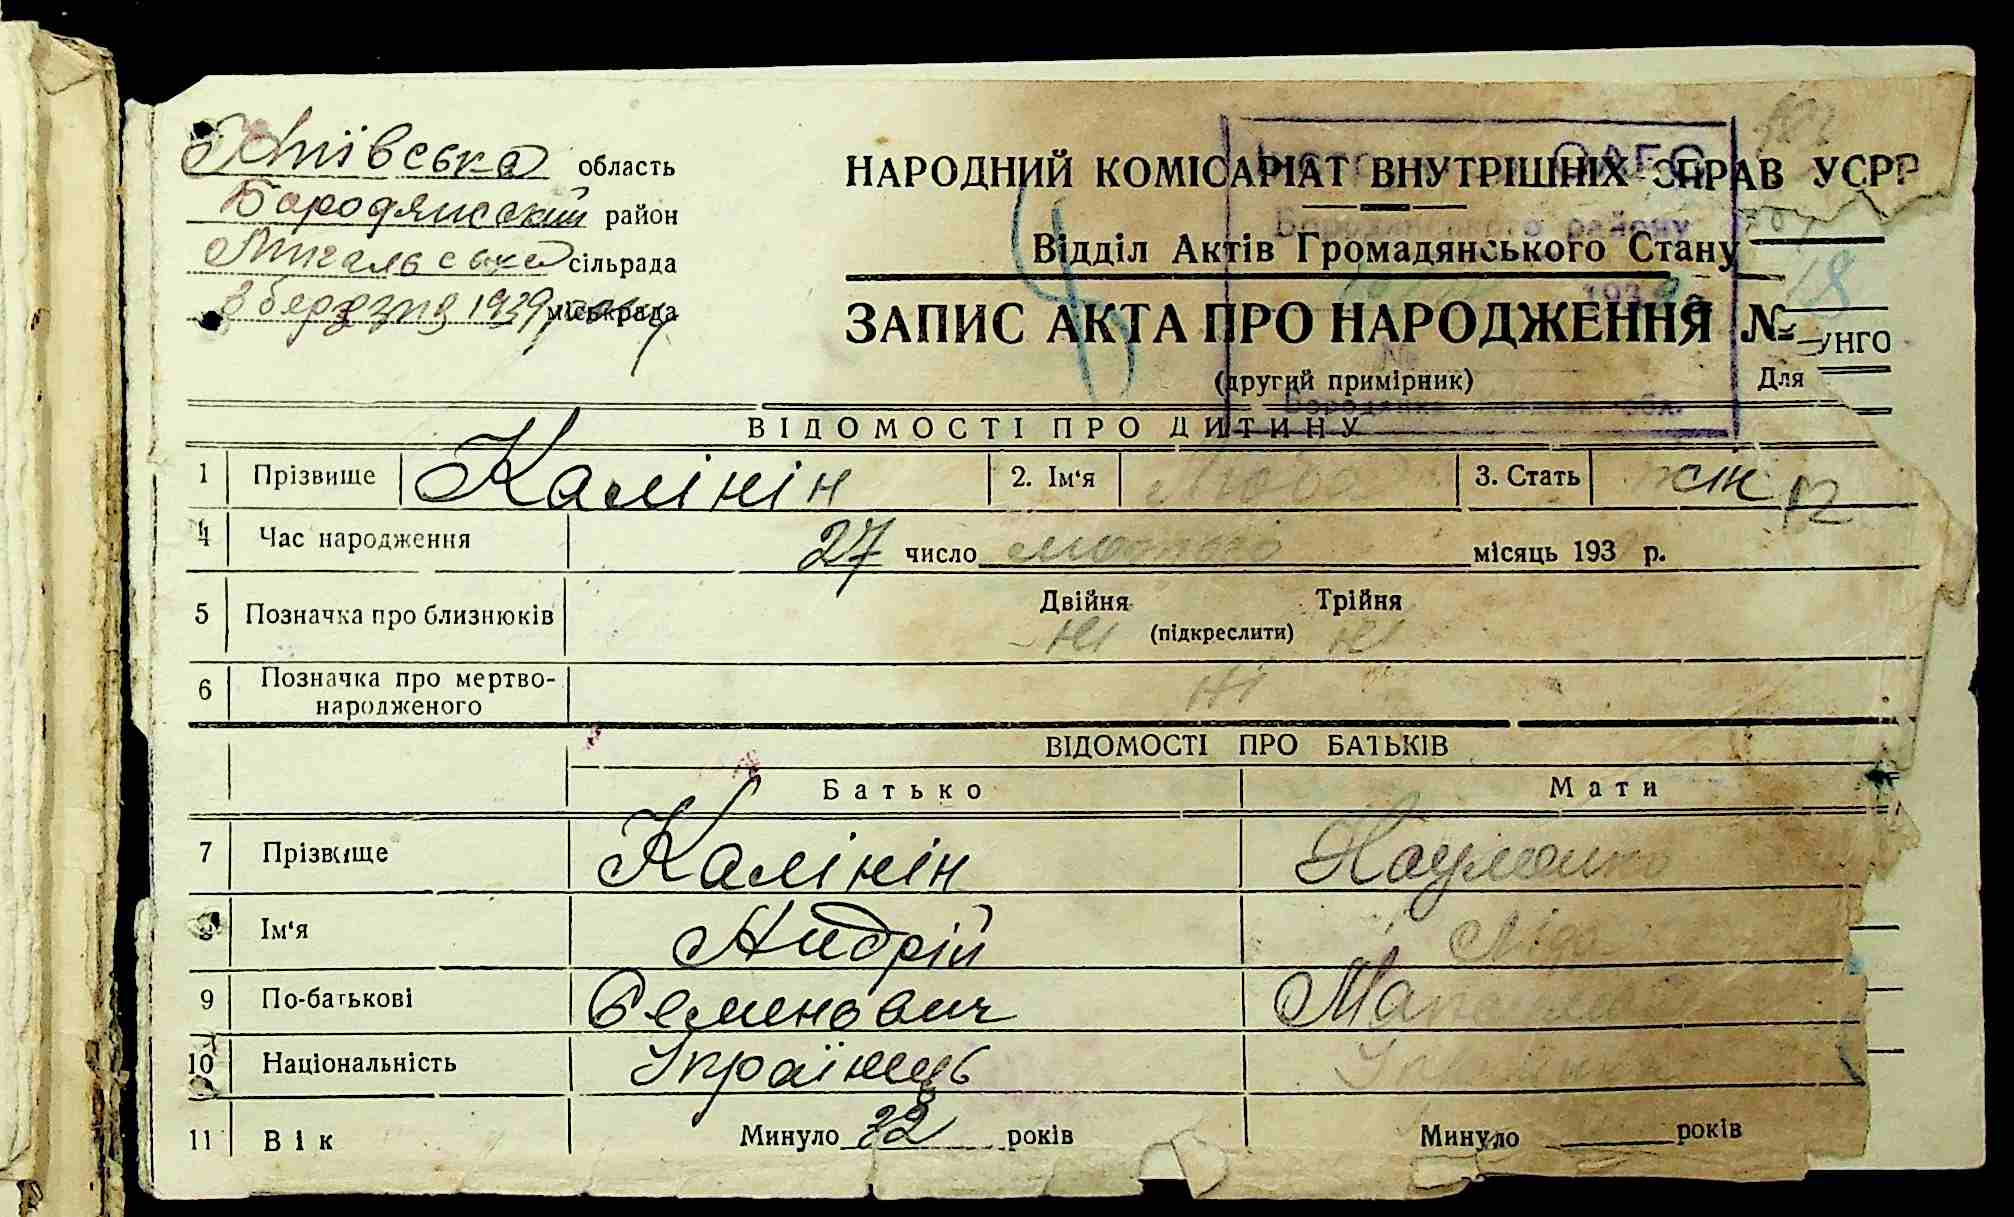 Київська область
Бородянський район
Мигальська сільрада
3 березня 1939 року міськрада
НАРОДНИЙ КОМІСАРІАТ ВНУТРІШНІХ СПРАВ УСРР
Відділ Актів Громадянського Стану
ЗАПИС АКТА ПРО НАРОДЖЕННЯ № 18
УНГО
(другий примірник)
Для
ВІДОМОСТІ ПРО ДИТИНУ
1 Прізвище Калінін 2. Ім'я Люба 3. Стать жін
4 Час народження 27 число лютого місяць 193 р.
5 Позначка про близнюків Двійня Трійня
ні (підкреслити) ні
6 Позначка про мертво-
народженого ні
ВІДОМОСТІ ПРО БАТЬКІВ
Батько Мати
7 Прізвище Калінін Науменко
8 Ім'я Андрій Ліда
9 По-батькові Семенович
10 Національність Українець Українка
11 Вік Минуло 22 років Минуло років